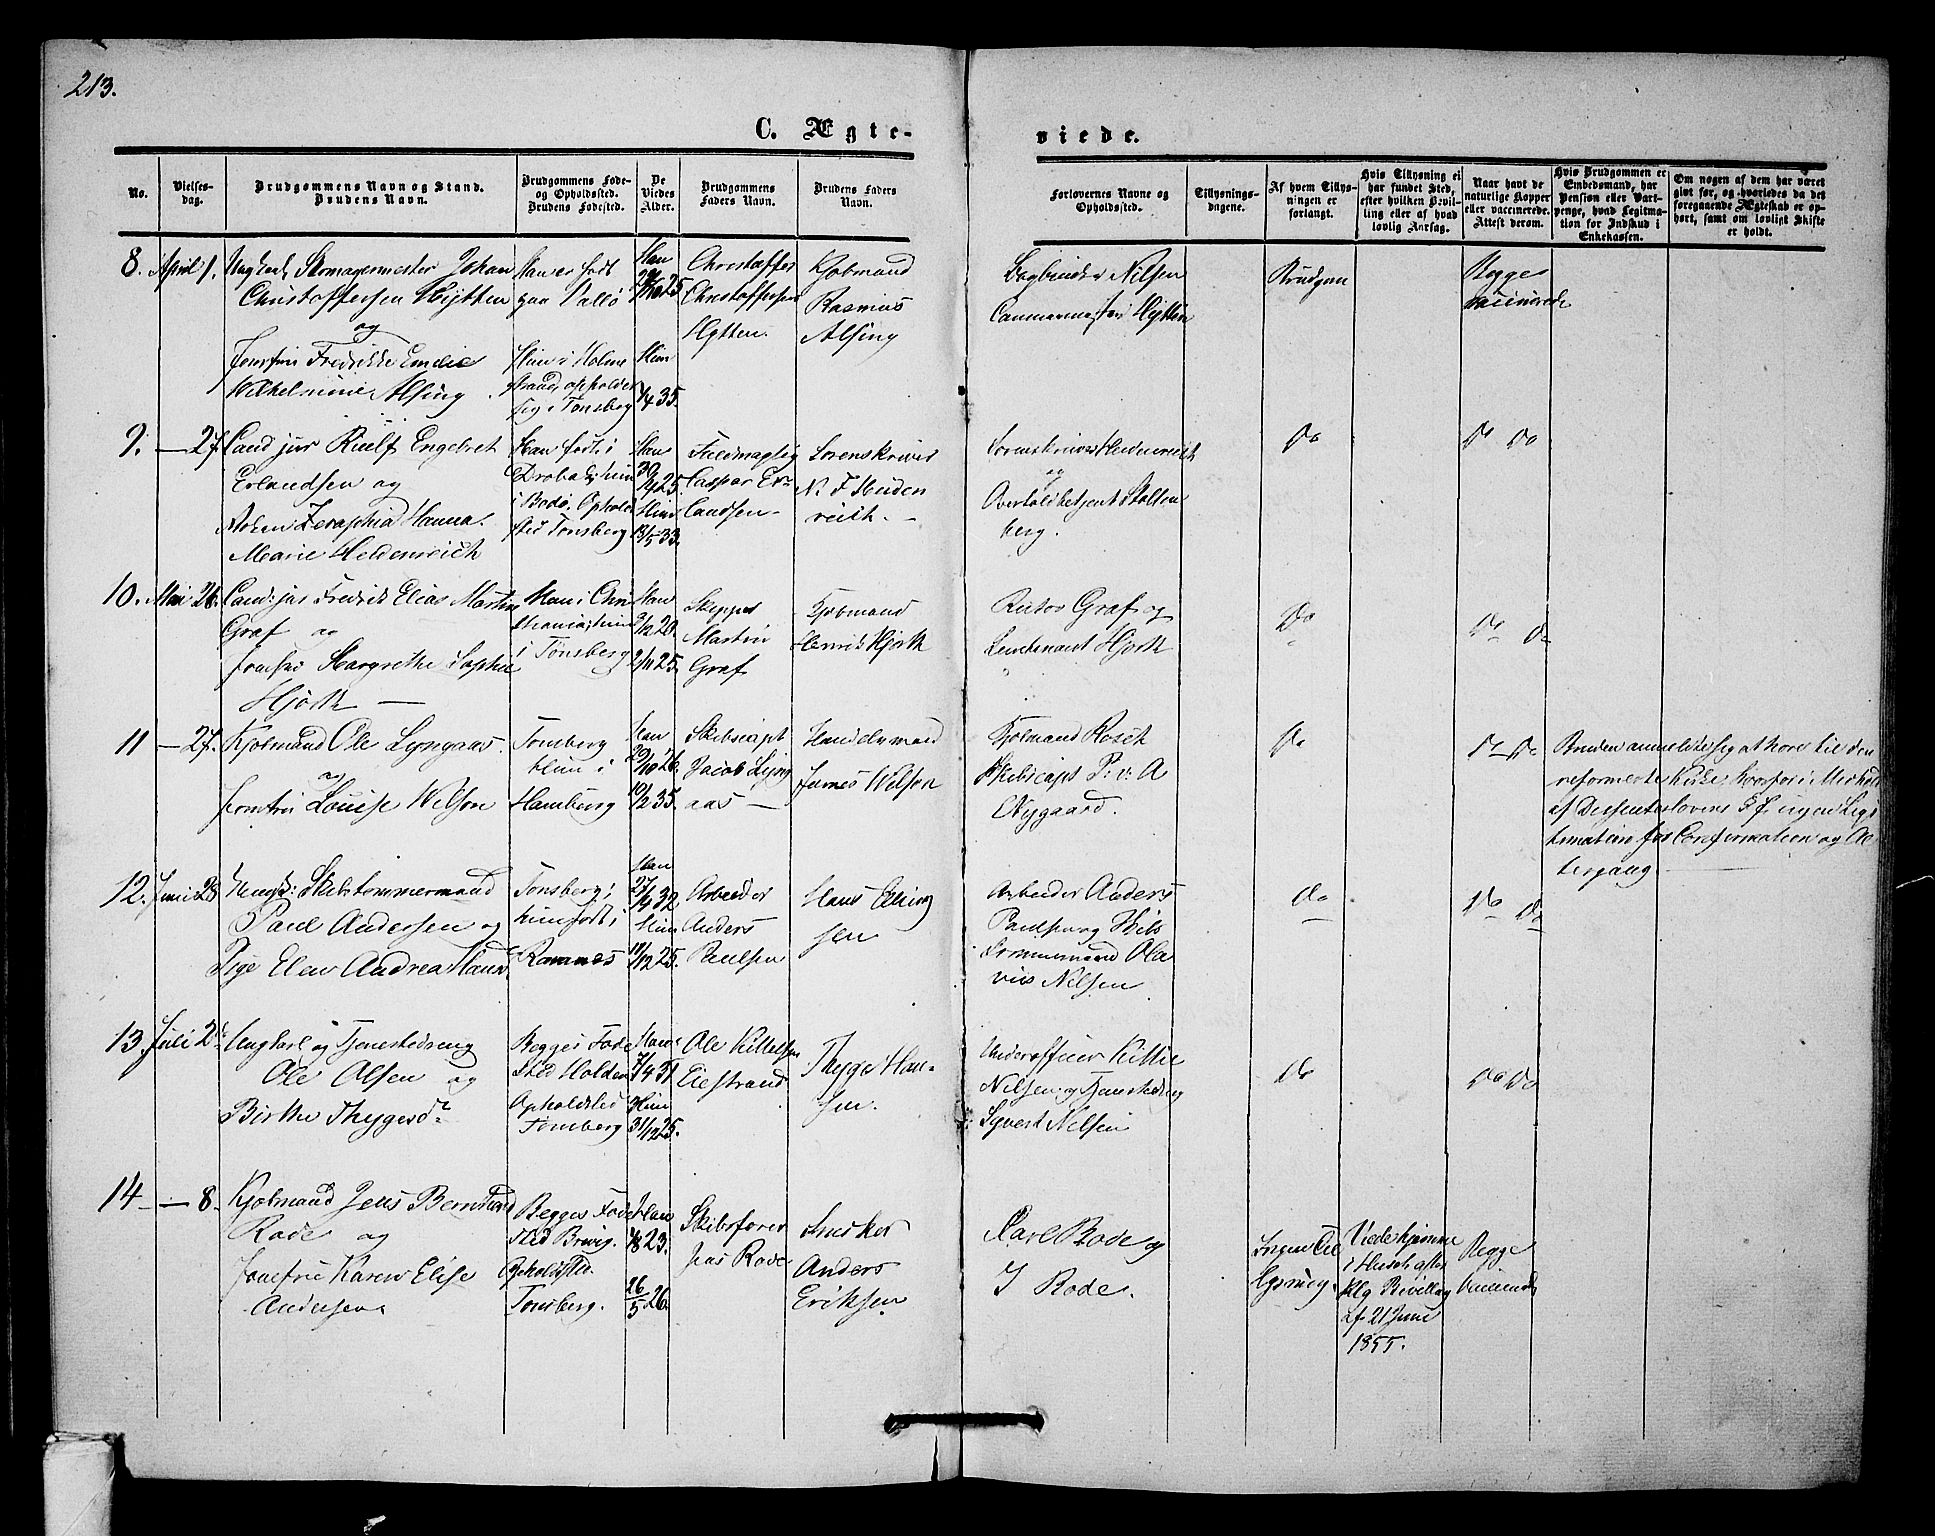 213.
C. Ægte-
viede.
No.
Vielses-
dag.
Brudgommens Navn og Stand.
Brudens Navn.
Brudgommens Føde-
og Opholdssted.
Brudens Fødested.
De
Viedes
Alder.
Brudgommens
Faders Navn.
Brudens Faders
Navn.
Forlovernes Navne og
Opholdssted.
Tillysnings-
dagene.
Af hvem Tillys-
ningen er
forlangt.
Hvis Tillysning ei
har fundet Sted,
efter hvilken Bevil-
ling eller af hvad
lovlig Aarsag.
Naar havt de
naturlige Kopper
eller vaccinerede.
Attest derom.
Hvis Brudgommen er
Embedsmand, har
Pension eller Vart-
penge, hvad Legitima-
tion for Indskud i
Enkekassen.
Om nogen af dem har været
gift før, og hvorledes da det
foregaaende Ægteskab er op-
hørt, samt om lovligt Skifte
er holdt.
8. April 1.
Ungkarl Skomagermester Johan
Christoffersen Hytten
og
Jomfru Fredrikke Emilie
Wilhelmine Alsing
Han er født
paa Vallø
Hun i Holme
strand, opholder
sig i Tønsberg
Han
25.
Hun
1/4 35.
Christoffer
Christoffersen
Hytten.
Kjøbmand
Rasmus
Alsing
Bogbinder Nilsen
Hytten
Brudgom
Begge
vaccinerede
9. — 27.
Cand jur Rudolf Engebret
Erlandsen og
Zeraphia Hanna
Marie Heidenreich
Han født i
Drøbak, hun
i Bodø. Ophold
sted Tønsberg
Han
30/4 25.
Hun
13/5 33.
Fuldmægtig
Caspar Er-
landsen
Sorenskriver
N. F. Heiden
reich. -
Sorenskriver Heidenreich
og
Overtoldbetjent Stolten
berg.
Do
Do Do
10. Mai 26.
Cand: jur Fredrik Elias Martin
Graf og
Jomfru Margrethe Sophie
Hjorth —
Han i Chri
stiania, hun
i Tønsberg
Han
2/12 20.
2/11 25.
Skipper
Martin
Graf
Kjøbmand
Henrik Hjorth
Rector Graf og
Lieutenant Hjorth
Do
Do Do
11 — 27.
Kjøbmand Ole Lyngaas
og
Jomfru Louise Wilson
Tønsberg
hun i
Hamburg
Han
20/10 26.
10/2 35.
Skibscapt
Jacob Lyng
aas —
Handelsmand
James Wilson
Kjøbmand Rosch
Skibscapt P: v: A
Nygaard.
Do
Do Do
Bruden anmeldte sig at høre til den
reformerte Kirke, hvorfor i Medhold
af Dissenterlovens § ingen Legi
timation for Confirmation og Al
tergang. —
12. Juni 28
Ungk: Skibstømmermand
Paul Andersen og
Pige Elen Andrea Hans
Tønsberg;
hun født i
Ramnes
Han
27/9 32
Hun
11/12 25.
Arbeider
Anders
Paulsen
Hans Elling
sen
Arbeider Anders
Paulsen og Skibs
tømmermand Ola
vus Nilsen
Do
Do Do
13. Juli 2
Ungkarl og Tjenestedreng
Ole Olsen og
Birthe Thygesd.
Begges Føde
sted Holden
Opholdsted
Tønsberg
Han
7/4 31
Hun
31/12 25.
Ole Kittelsen
Eiestrand
Thyge Han-
sen.
Underofficer Kittil
Nilsen og Tjenestedreng
Syvert Nilsen
Do
Do Do
14 — 8.
Kjøbmand Jens Bernthard
Rode og
Jomfru Karen Elise
Andersen
Begges Føde
sted Brevig.
Opholdsted.
Tønsberg.
Han
1/8 23.
26/5 26.
Skibsfører
Jens Rode.
Snedker
Anders
Eriksen
Carl Rode og
J Rode.
Ingen Til
lysning.
Viede hjemme
i Huset efter
Klg Bevilling
af 21 Juni
1855.
Begge
vaccinerede